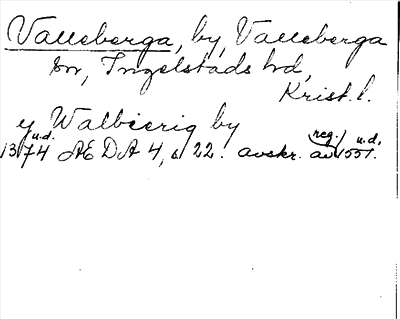 Valleberga, by, Valleberga
sn, Ingelstads hd,
Krist. l.
y Walbierig by
u.d. reg. u.d.
1374 ÆDA 4, s 22. avskr. av 1551.